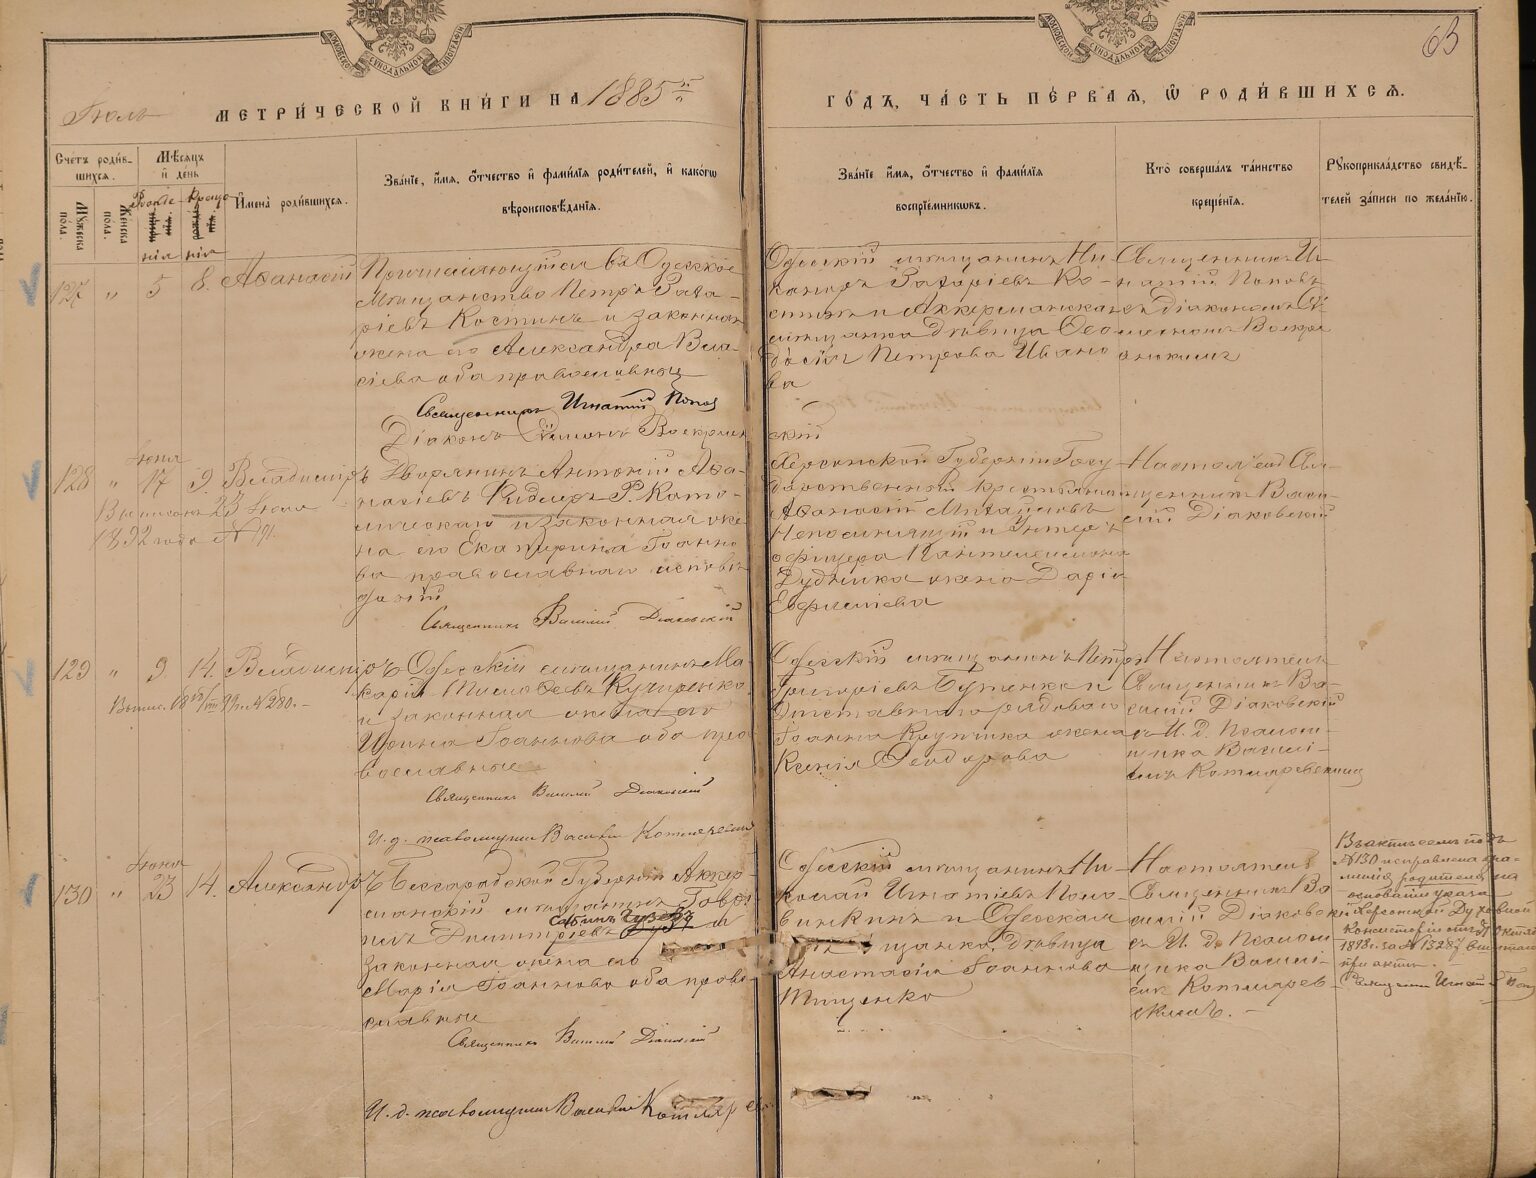 63
МОСКОВСКОЙ СѴНОДАЛЬНОЙ ТИПОГРАФІИ
МОСКОВСКОЙ СѴНОДАЛЬНОЙ ТИПОГРАФІИ
Іюль
МЕТРИ́ЧЕСКОЙ КНИ́ГИ НА 1885
ГО́ДЪ, ЧА́СТЬ ПЕ́РВАѦ, Ѽ РОДИ́ВШИХСѦ.
Сче́тъ роди́в-
шихсѧ.
Мѣ́сѧцъ
и҆ де́нь
Мꙋ́жеска по́ла.
Же́нска по́ла.
Рожде
нія
Креще
нія
И҆мена̀ роди́вшихсѧ.
Зва́нїе, и҆́мѧ, ѻ҆́тчество и҆ фами́лїѧ роди́телей, и҆ како́гѡ
вѣроисповѣ́данїѧ.
Зва́нїе, и҆́мѧ, ѻ҆́тчество и҆ фами́лїѧ
воспрїе́мникѡвъ.
Кто̀ соверша́лъ та́инство
креще́нїѧ.
Рꙋкоприкла́дство свидѣ́-
телей за́писи по жела́нїю.
127 " 5 8. Аѳанасій
Причисляющійся въ Одесское
мѣщанство Петръ Заха-
ріевъ Костинъ и законная
жена его Александра Вла-
сіева оба православные
Священникъ Игнатій Попов
Діаконъ Симеонъ Воскресен
Одесскій мѣщанинъ Ни-
каноръ Захаріевъ Ко-
стинъ и Аккерманская
мѣщанка дѣвица Ѳео
досія Петрова Ивано
ва
скій
Священникъ Иг-
натій Поповъ
съ Діакономъ Си-
меономъ Воскре
сенскимъ
128 " Іюня 17 9. Владиміръ
Выписанъ 23 Іюля
1892 года № 191.
Дворянинъ Антоній Аѳа-
насіевъ Кидлеръ Р. Като-
лическаго и законная же-
на его Екатерина Іоанно-
ва православнаго исповѣ
даній
Священникъ Василій Діаковскій
Херсонской Губерніи Госу-
дарственный крестьянин
Аѳанасій Михайловъ
Непомнящій и Унтеръ
офицера Пантелеимона
Дудника жена Дарія
Евфиміева
Настоят. Свя-
щенникъ Васи-
лій Діаковскій
129 " 9 14. Владиміръ
Выпис. № 280. –
Одесскій мѣщанинъ Ма-
карій Тимоѳеевъ Кучеренко
и законная жена его
Ирина Іоаннова оба пра
вославные
Священникъ Василій Діаковскій
И. д. псаломщика Василій Котляревскій
Одесскій мѣщанинъ Петръ
Григоріевъ Бутенко и
Отставного рядоваго
Іоанна Крупика жена
Ксенія Ѳеодорова
Настоятель
Священникъ Ва-
силій Діаковскій
съ И. д. Псалом-
щика Васили-
емъ Котляревскимъ
130 " Іюня 23 14. Александръ
Бессарабской Губерніи Аккер-
манскій мѣщанинъ Гаврі-
илъ Димитріевъ и
законная жена его
Марія Іоаннова оба право-
славные
Священникъ Василій Діаковскій
И. д. псаломщика Василій Котляревс
Одесскій мѣщанинъ Ни-
колай Игнатіевъ Поло-
винкинъ и Одесская
мѣщанка дѣвица
Анастасія Іоаннова
Тищенко
Настоятель
Священникъ Ва
силій Діаковскій
съ И. д. Псалом
щика Васили-
емъ Котлярев-
скимъ. –
Въ актѣ семъ подъ
№130 исправлена фа-
милія родителя, на
основаніи указа
Херсонской Духовной
Консисторіи отъ Октяб
1898 г. за № 13287
при актѣ. –
Священник Игнатій Попов